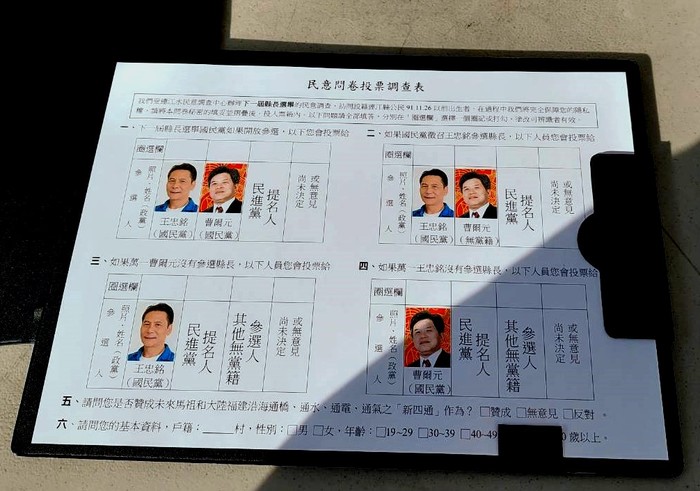 民意問卷投票調查表
我們是連江水民意調查中心辦理下一屆縣長選舉的民意調查，訪問設籍連江縣公民 91.11.26 以前出生者，在過程中我們將完全保障您的隱私
權。請將本問卷秘密的填妥並摺疊後，投入票箱內，以下問題請全部填答，分別在「圈選欄」蓋標一個圈記或打勾，塗改可辨識者有效。
一、下一屆縣長選舉國民黨如果開放參選，以下您會投票給
圈選欄
參選人
照片、姓名（政黨）
王忠銘
（國民黨）
曹爾元
（國民黨）
民進黨
提名人
尚未決定
或無意見
二、如果國民黨徵召王忠銘參選縣長，以下人員您會投票給
圈選欄
參選人
照片、姓名（政黨）
王忠銘
（國民黨）
曹爾元
（無黨籍）
民進黨
提名人
尚未決定
或無意見
三、如果萬一曹爾元沒有參選縣長，以下人員您會投票給
圈選欄
參選人
照片、姓名（政黨）
王忠銘
（國民黨）
民進黨
提名人
其他無黨籍
參選人
尚未決定
或無意見
四、如果萬一王忠銘沒有參選縣長，以下人員您會投票給
圈選欄
參選人
照片、姓名（政黨）
曹爾元
（國民黨）
民進黨
提名人
其他無黨籍
參選人
尚未決定
或無意見
五、請問您是否贊成未來馬祖和大陸福建沿海通橋、通水、通電、通氣之「新四通」作為？□贊成 □無意見 □反對。
六、請問您的基本資料，戶籍：＿＿＿村，性別：□男 □女，年齡：□19~29 □30~39 □40~49 0 歲以上。